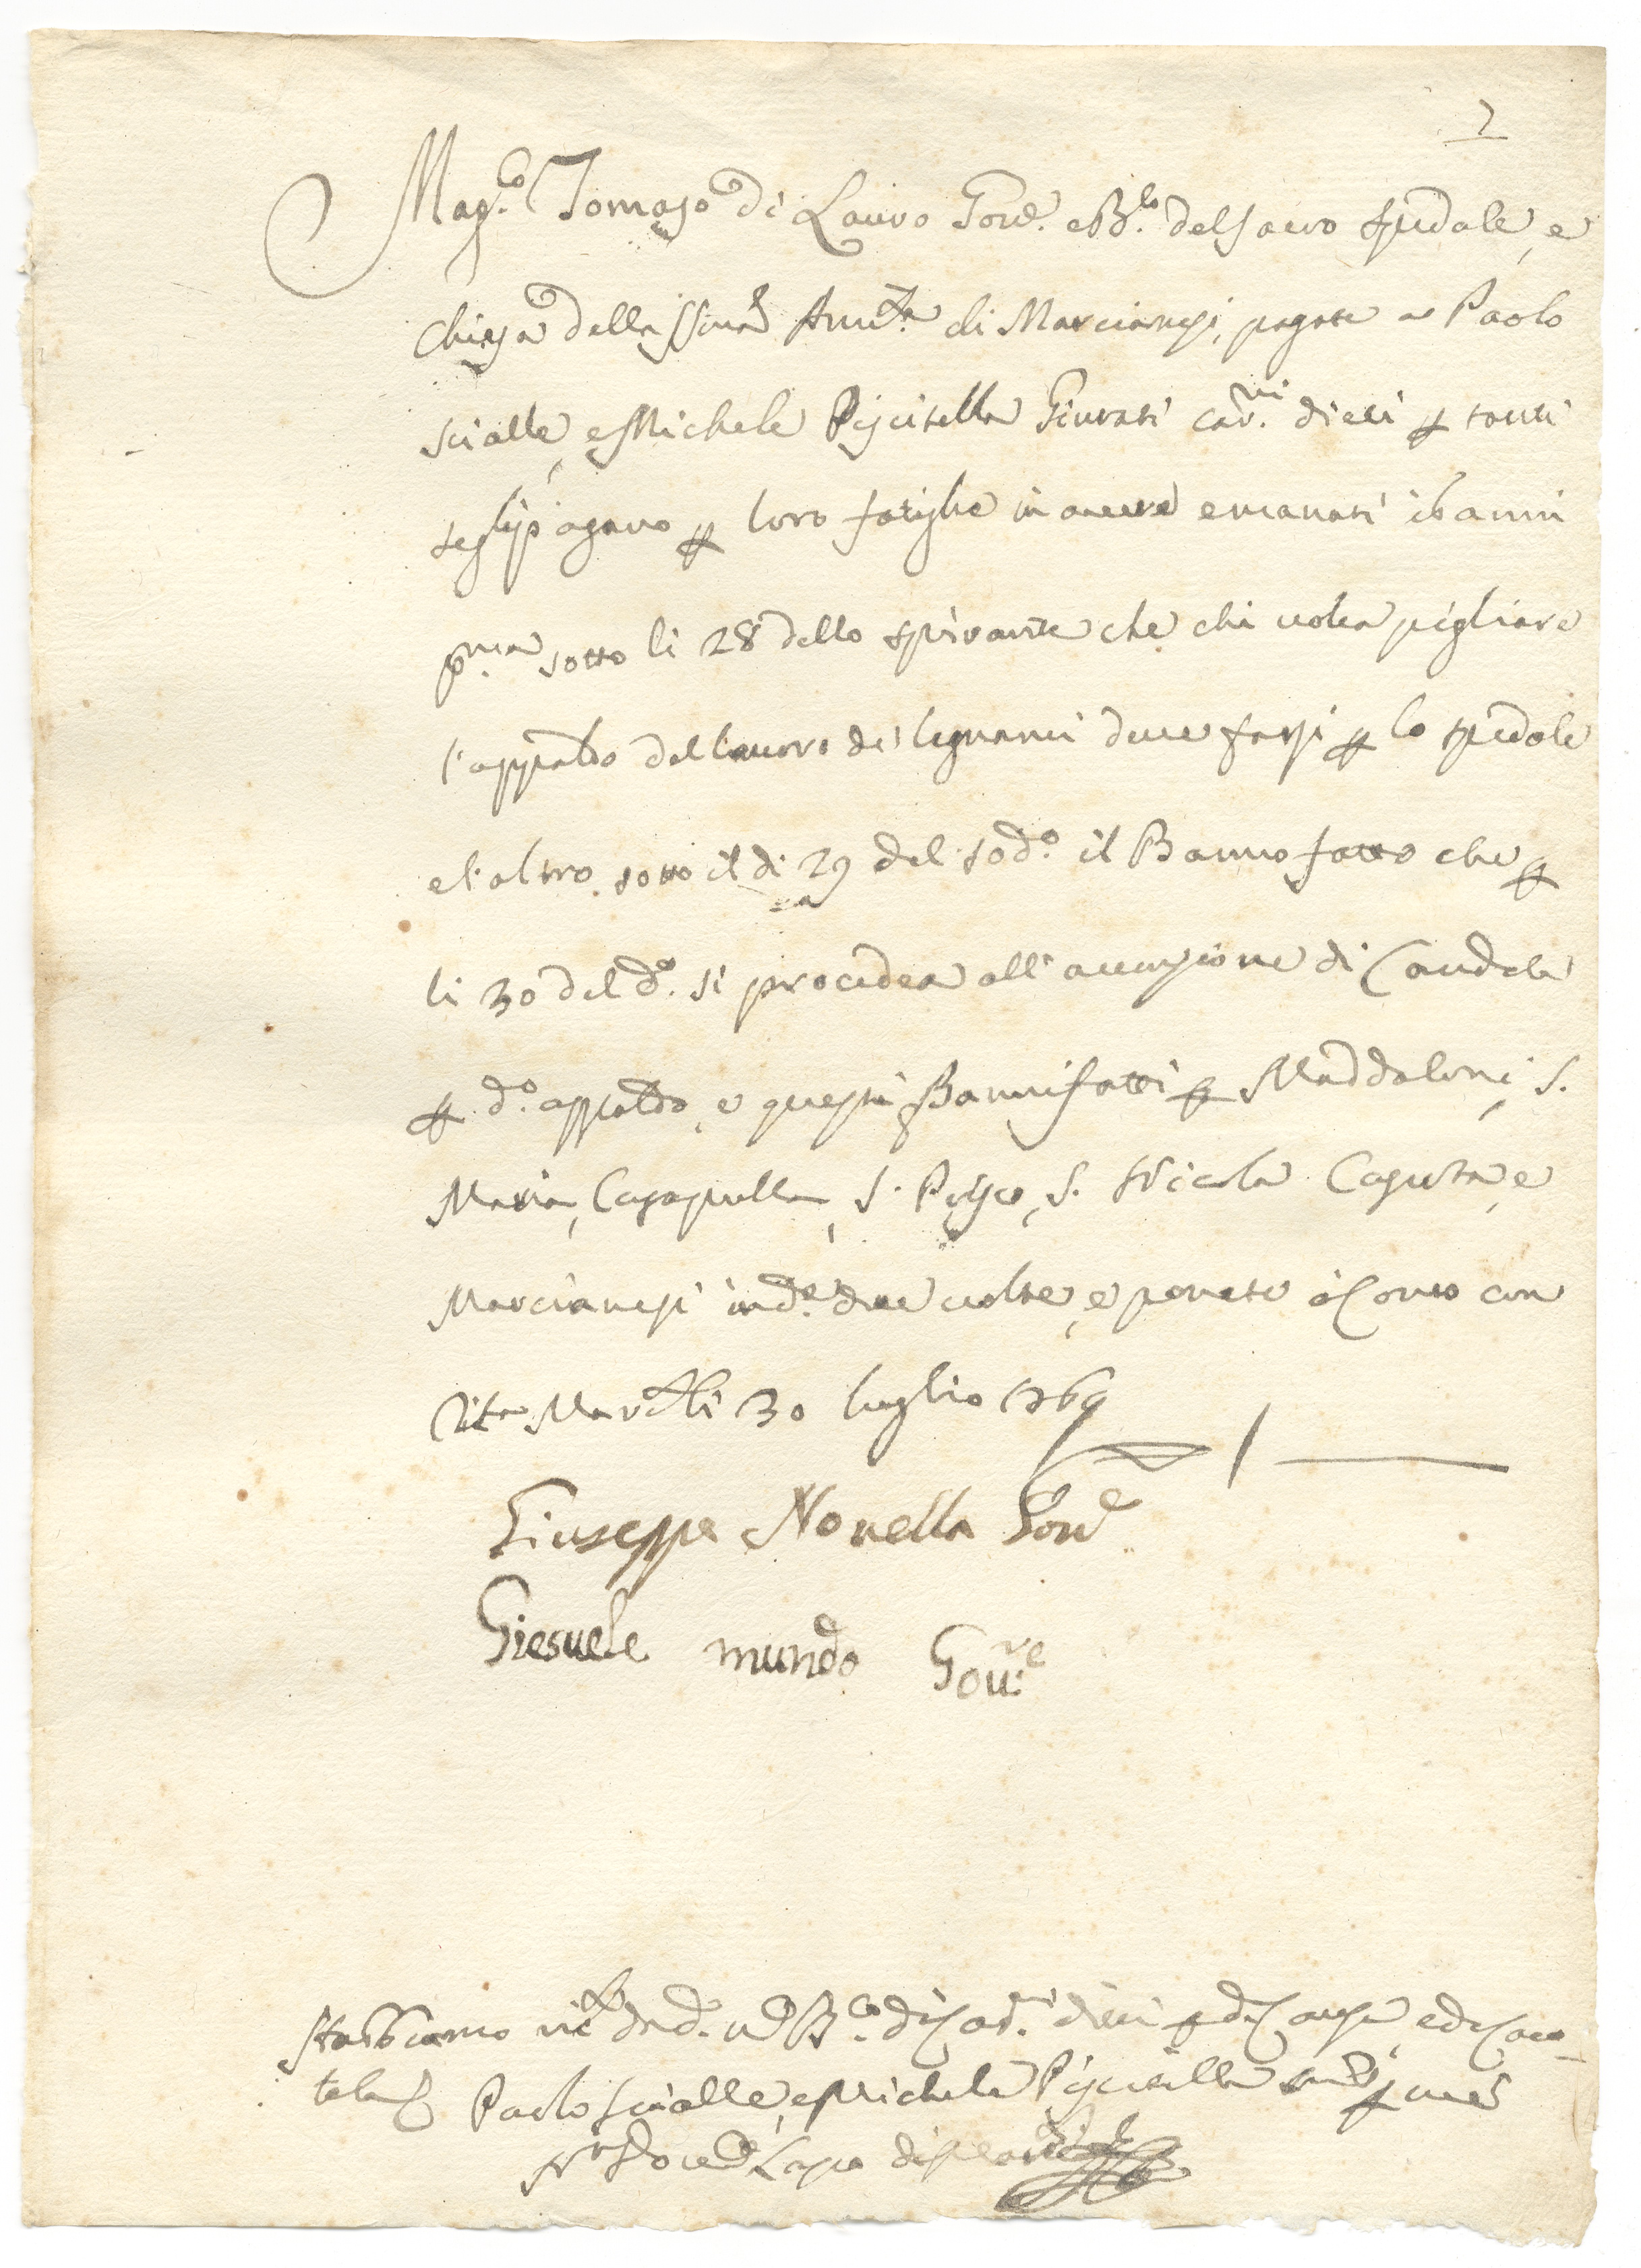 2
Mag.co Tomaso di Lauro Gov.e e B.lo del sacro spedale, e
Chiesa della SSma Annta. di Marcianesi, pagate a Paolo
Scialle, e Michele Piscitella Giurati car.ni dieci per tanti
se gli pagano per loro fatighe in avere emanati i banni
p.ma sotto li 28 dello spirante che chi volea pigliare
l'appaldo del lavoro de' legnami deve farsi per lo spedale
e l'altro sotto il di 29 del so d.o il Banno fatto che per
li 30 del d.o si procedea all'accenzione di Candela
per d.o appaldo, e questi Banni fatti per Maddaloni, S.
Maria, Casapulla, S. Prisco, S. Nicola Caserta, e
Marcianesi in d.e due volte, e ponete a Conto con
rta Mar. li 30 luglio 1769
Giuseppe Novella Gov.e
Giesuele mundo Gov.re
Habbiamo
Paolo Scialle, e Michele Piscitella